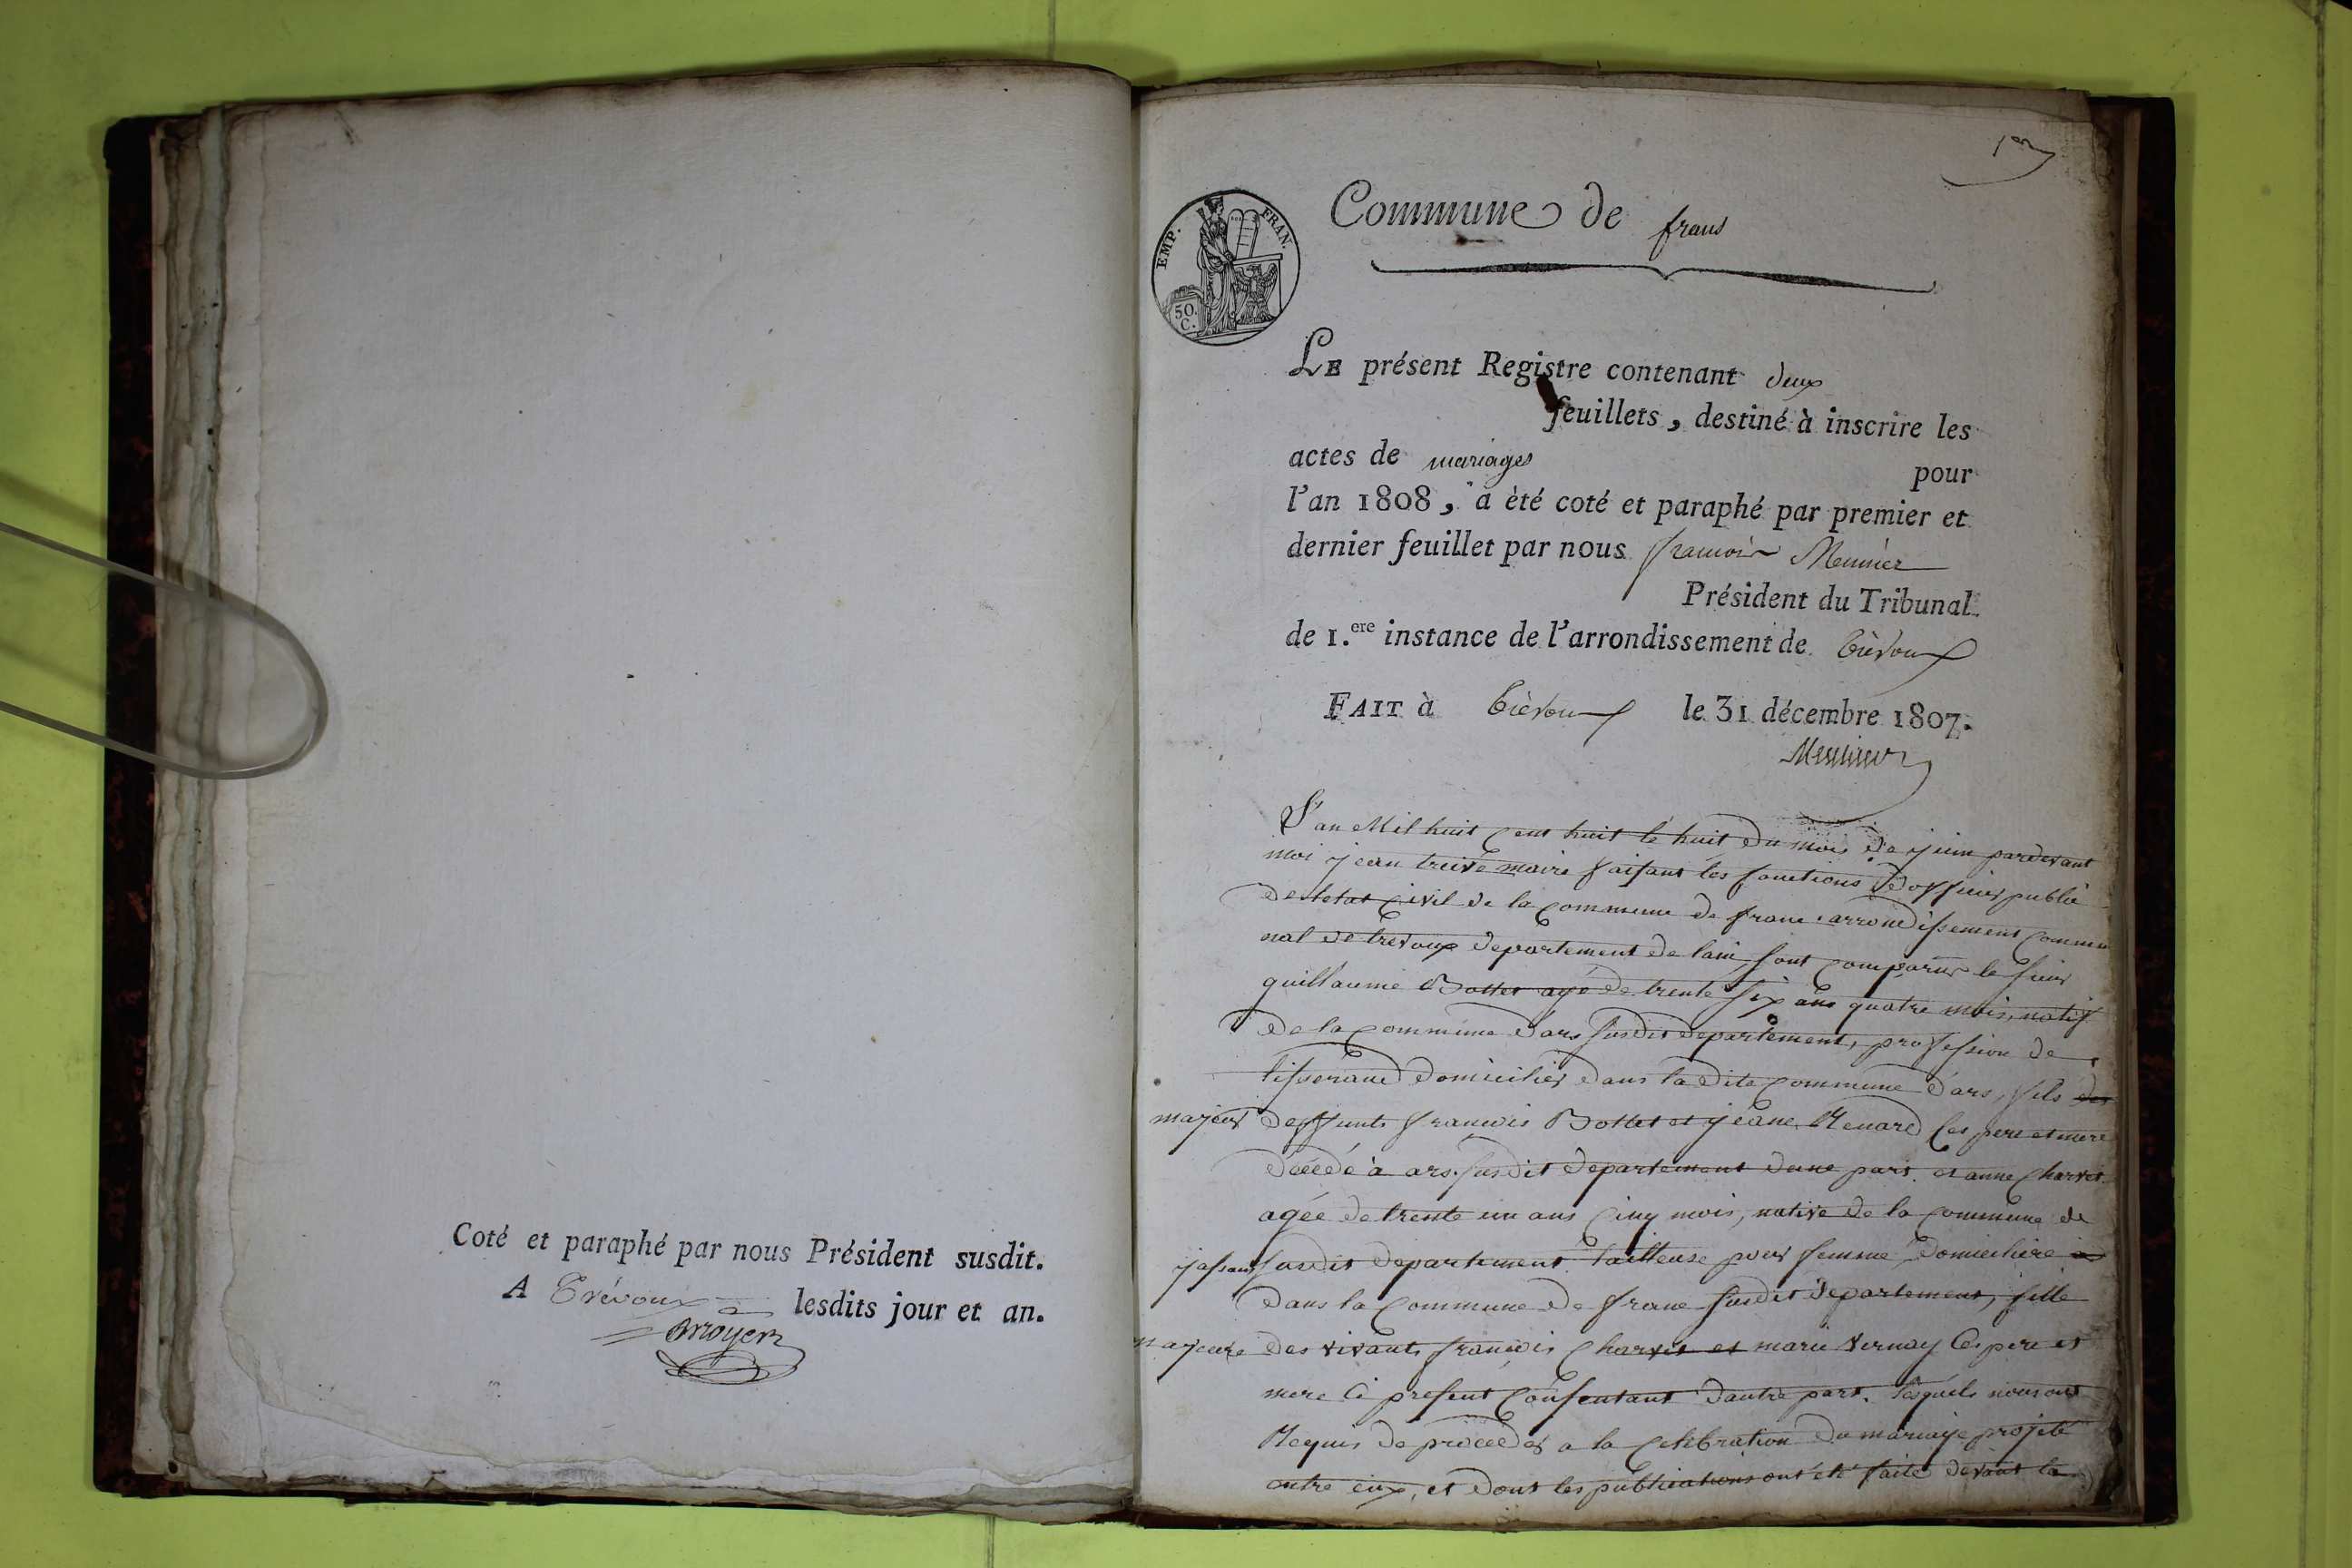 Coté et paraphé par nous Président susdit.
A Trévoux lesdits jour et an.
1er
Commune de frans
EMP. FRAN.
50. C.
LE présent Registre contenant deux
feuillets, destiné à inscrire les
actes de mariages pour
l'an 1808, a èté coté et paraphé par premier et
dernier feuillet par nous francois Meunier
Président du Tribunal
de 1.ere instance de l'arrondissement de trévoux
FAIT à trévoux le 31 décembre 1807.
Meunier
L'an Mil huit Cent huit le huit du mois de juin pardevant
moi jean treive maire faisant les fonctions d'officier public
de letat Civil de la Commune de franc arrondissement Commu
nal de trevoux departement de lain, sont Comparus le sieur
guillaume Bottet agé de trente six ans quatre mois, natif
de la Commune dars susdit departement, profession de
tisserand domicilier dans ladite Commune d'ars, fils des
majeur deffunts francois Bottet et jeane Renard Ces pere et mere
décédé à ars susdit departement dune part. et anne Charvet
agée de trente un ans Cinq mois, native de la Commune de
jassans susdit departement tailleuse pour femme, domiciliere
dans la Commune de franc susdit departement, fille
majeure des vivants francois Charvet et marie vernay Ces pere et
mere Ci present Consentant dautre part. lesquels nous ont
Requis de proceder a la Celebration du mariage projeté
entre eux, et dont les publications ont été faite devant la